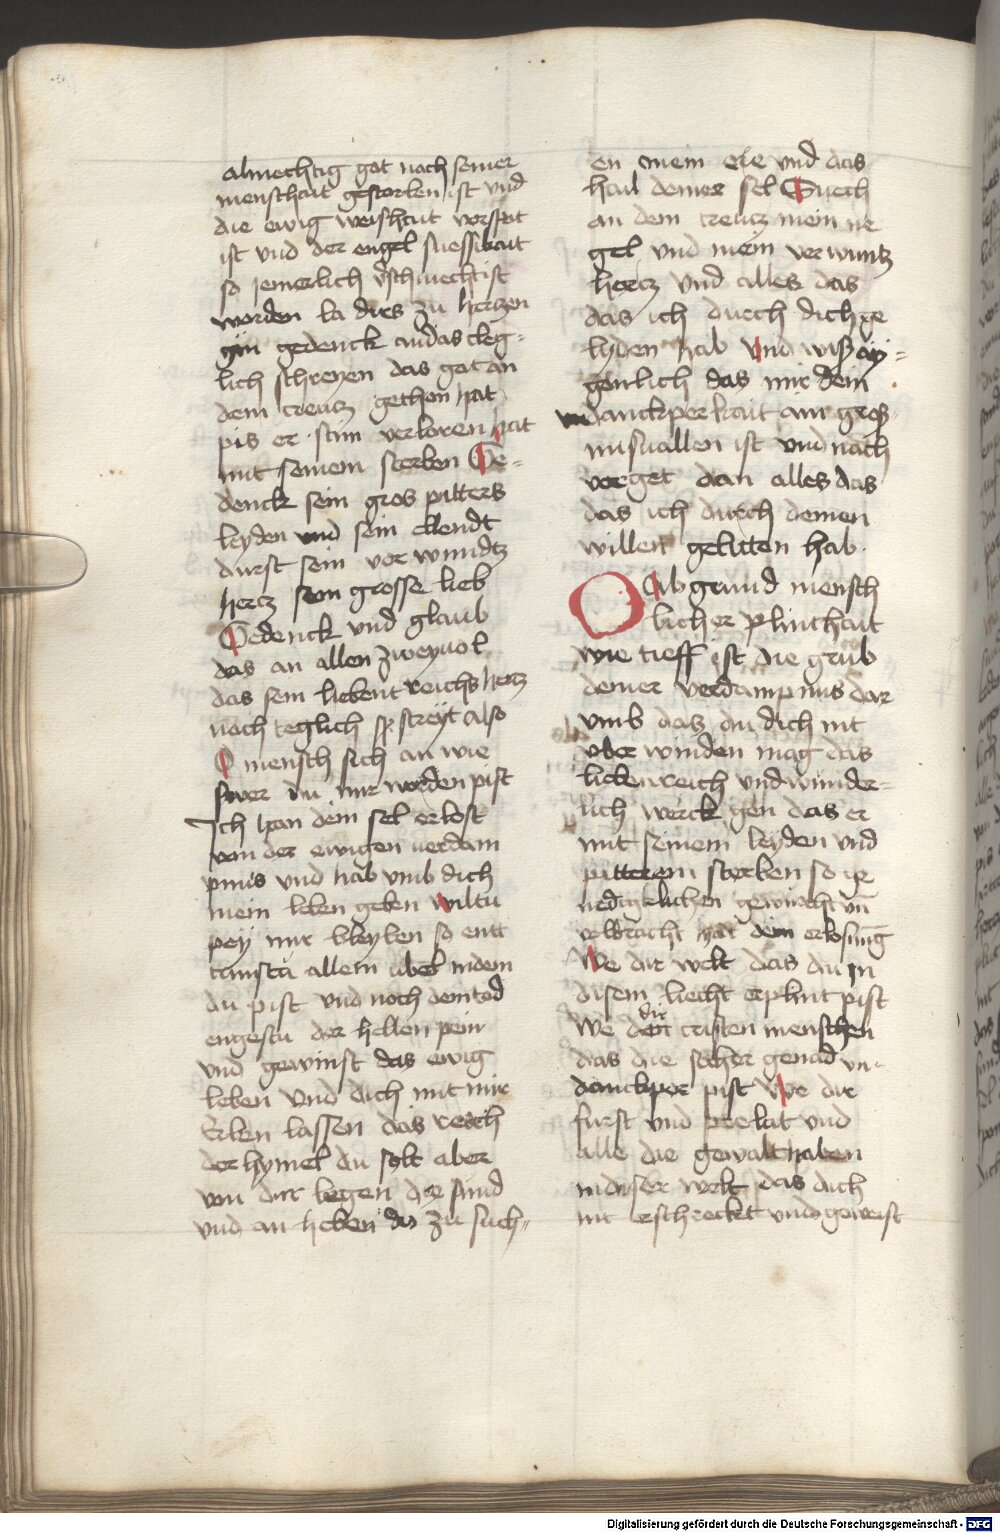 almechtig got nach seiner
menschait gestorben ist und
die ewig weishait verspot
ist vnd der engel suessikait
so jemerlich v̓schmecht ist
worden la dirs zu hertzen
gin gedenck an das cleg-
lich schreyen das got an
dem creutz gethon hat
pis er stim verloren hat
mit seinem sterben Ge-
denck sein gros pitters
leyden vnd sein ellendt
durst sein ver wundtz
hertz sein grosse lieb
Gedenck vnd glaub
das an allen zweyuol
das sein liebent reichs hertz
nach teglich streyt also
O mensch sich an wie
swer du mir worden pist
Ich han dein sel erlost
von der ewigen verdam
pnus vnd hab vmb dich
mein leben geben wiltu
pey mir bleyben so entt
rinstu allem vbel in dem
du pist vnd noch dem tod
engestu der hellen pein
vnd gewinst das ewig
leben Vnd dich mit mir
Erben lassen das reich
der hymel du solt aber
von dir legen die sund
vnd an heben zu such-
en mein ere vnd das
hail deiner sel Suech
an dem creutz mein ne
gel vnd mein verwuntz
hertz vnd alles das
das ich durch dich ge
lyden hab Vnd wiss ay-
genlich das mir dein
vndanckperkait ain gros-
missuallen ist vnd nach
verget dan alles das
das ich durch deinen
willen gelitten hab
O Abgrund mensch
licher plinthait
wie tieff ist die grub
deiner verdampnus dar
vmb das du dich nit
vber winden mag das
liebenreich vnd wunder-
lich werck gen das er
mit seinem leyden vnd
pitterem sterben so ge
nedigklichen gewurcht vn̄
volbracht hat dein erlosung
We dir welt das du in
disem liecht erplint pist
We dir cristen menschen
das die solher genad vn-
danckper pist We dir
furst vnd prelat vnd
alle die gewalt haben
in diser welt das dich
nit erschrecket vnd gewist